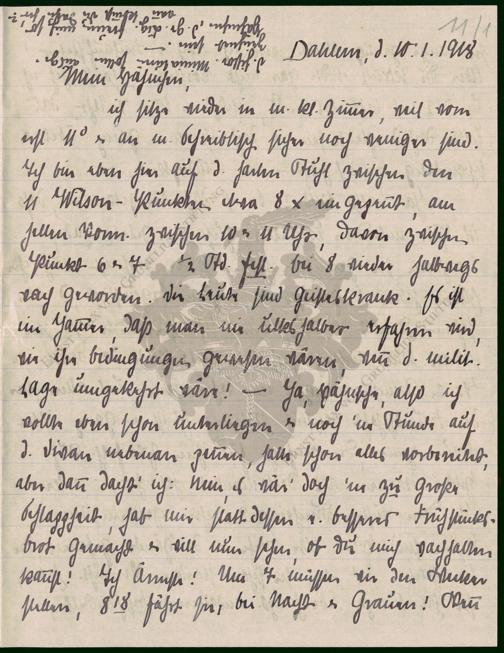 Dahlem, d. 10.1.1918
11/1
Mein Häsichen,
ich sitze wieder in m. kl. Zimmer, weil vorn
erst 11° & an m. Schreibtisch sicher noch weniger sind.
Ich bin eben hier auf d. harten Stuhl zwischen den
11 Wilson-Punkten etwa 8 x eingepennt, am
hellen Vorm. zwischen 10 & 11 Uhr, davon zwischen
Punkt 6 & 7 ½ Std. fest. bei 8 wieder halbwegs
wach geworden. Die Leute sind geisteskrank. Es ist
ein Jammer, daß man nie ulkshalber erfahren wird,
wie ihre bedingungen gewesen wären, wenn d. milit.
Lage umgekehrt wäre! — Ja, also ich
wollte eben schon unterliegen & noch 'ne Stunde auf
d. Divan nebenan pennen, hatte schon alles vorbereitet,
aber dann dacht' ich: Nein, es wär' doch 'ne zu große
Schlappheit, hab mir statt dessen e. besseres Frühstücks-
brot gemacht & will nun sehen, ob Du mich wachhalten
kannst! Ich Ärmste! Um 7 müssen wir den Wecker
stellen, 8 18 fährt sie, bei Nacht & Grauen! Wenn